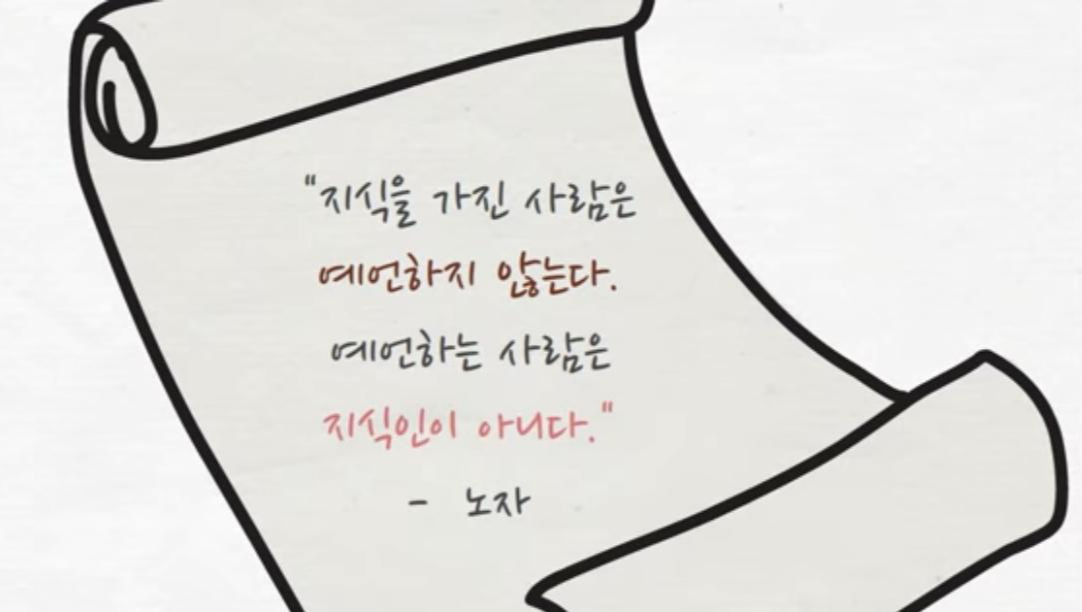 "지식을 가진 사람은
예언하지 않는다.
예언하는 사람은
지식인이 아니다."
- 노자